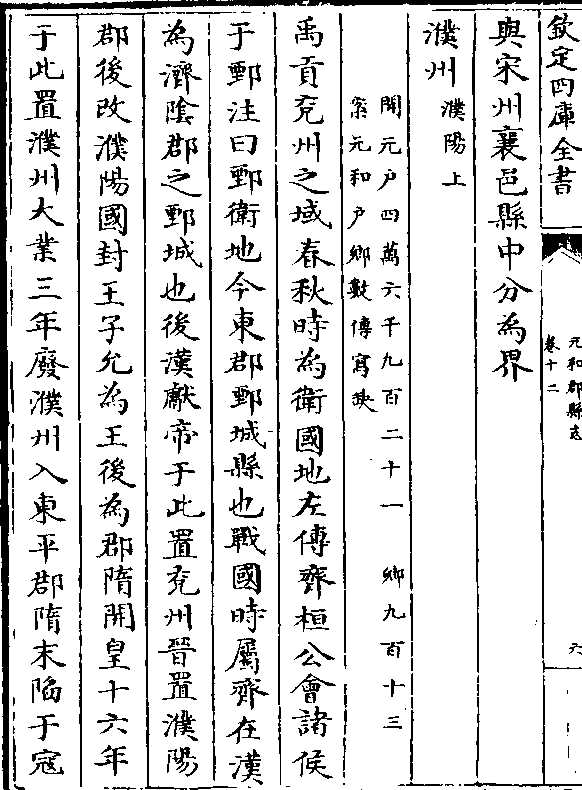 欽定四庫全書
元和郡縣志
卷十二
六
與宋州襄邑縣中分為界
濮州 濮陽 上
開元戶四萬六千九百二十一 鄉九百十三
案元和戶鄉數傳寫缺
禹貢兖州之域春秋時為衛國地左傳齊桓公會諸侯
于鄄注曰鄄衛地今東郡鄄城縣也戰國時屬齊在漢
為濟陰郡之鄄城也後漢獻帝于此置兖州晉置濮陽
郡後改濮陽國封王子允為王後為郡隋開皇十六年
于此置濮州大業三年廢濮州入東平郡隋末陷于寇